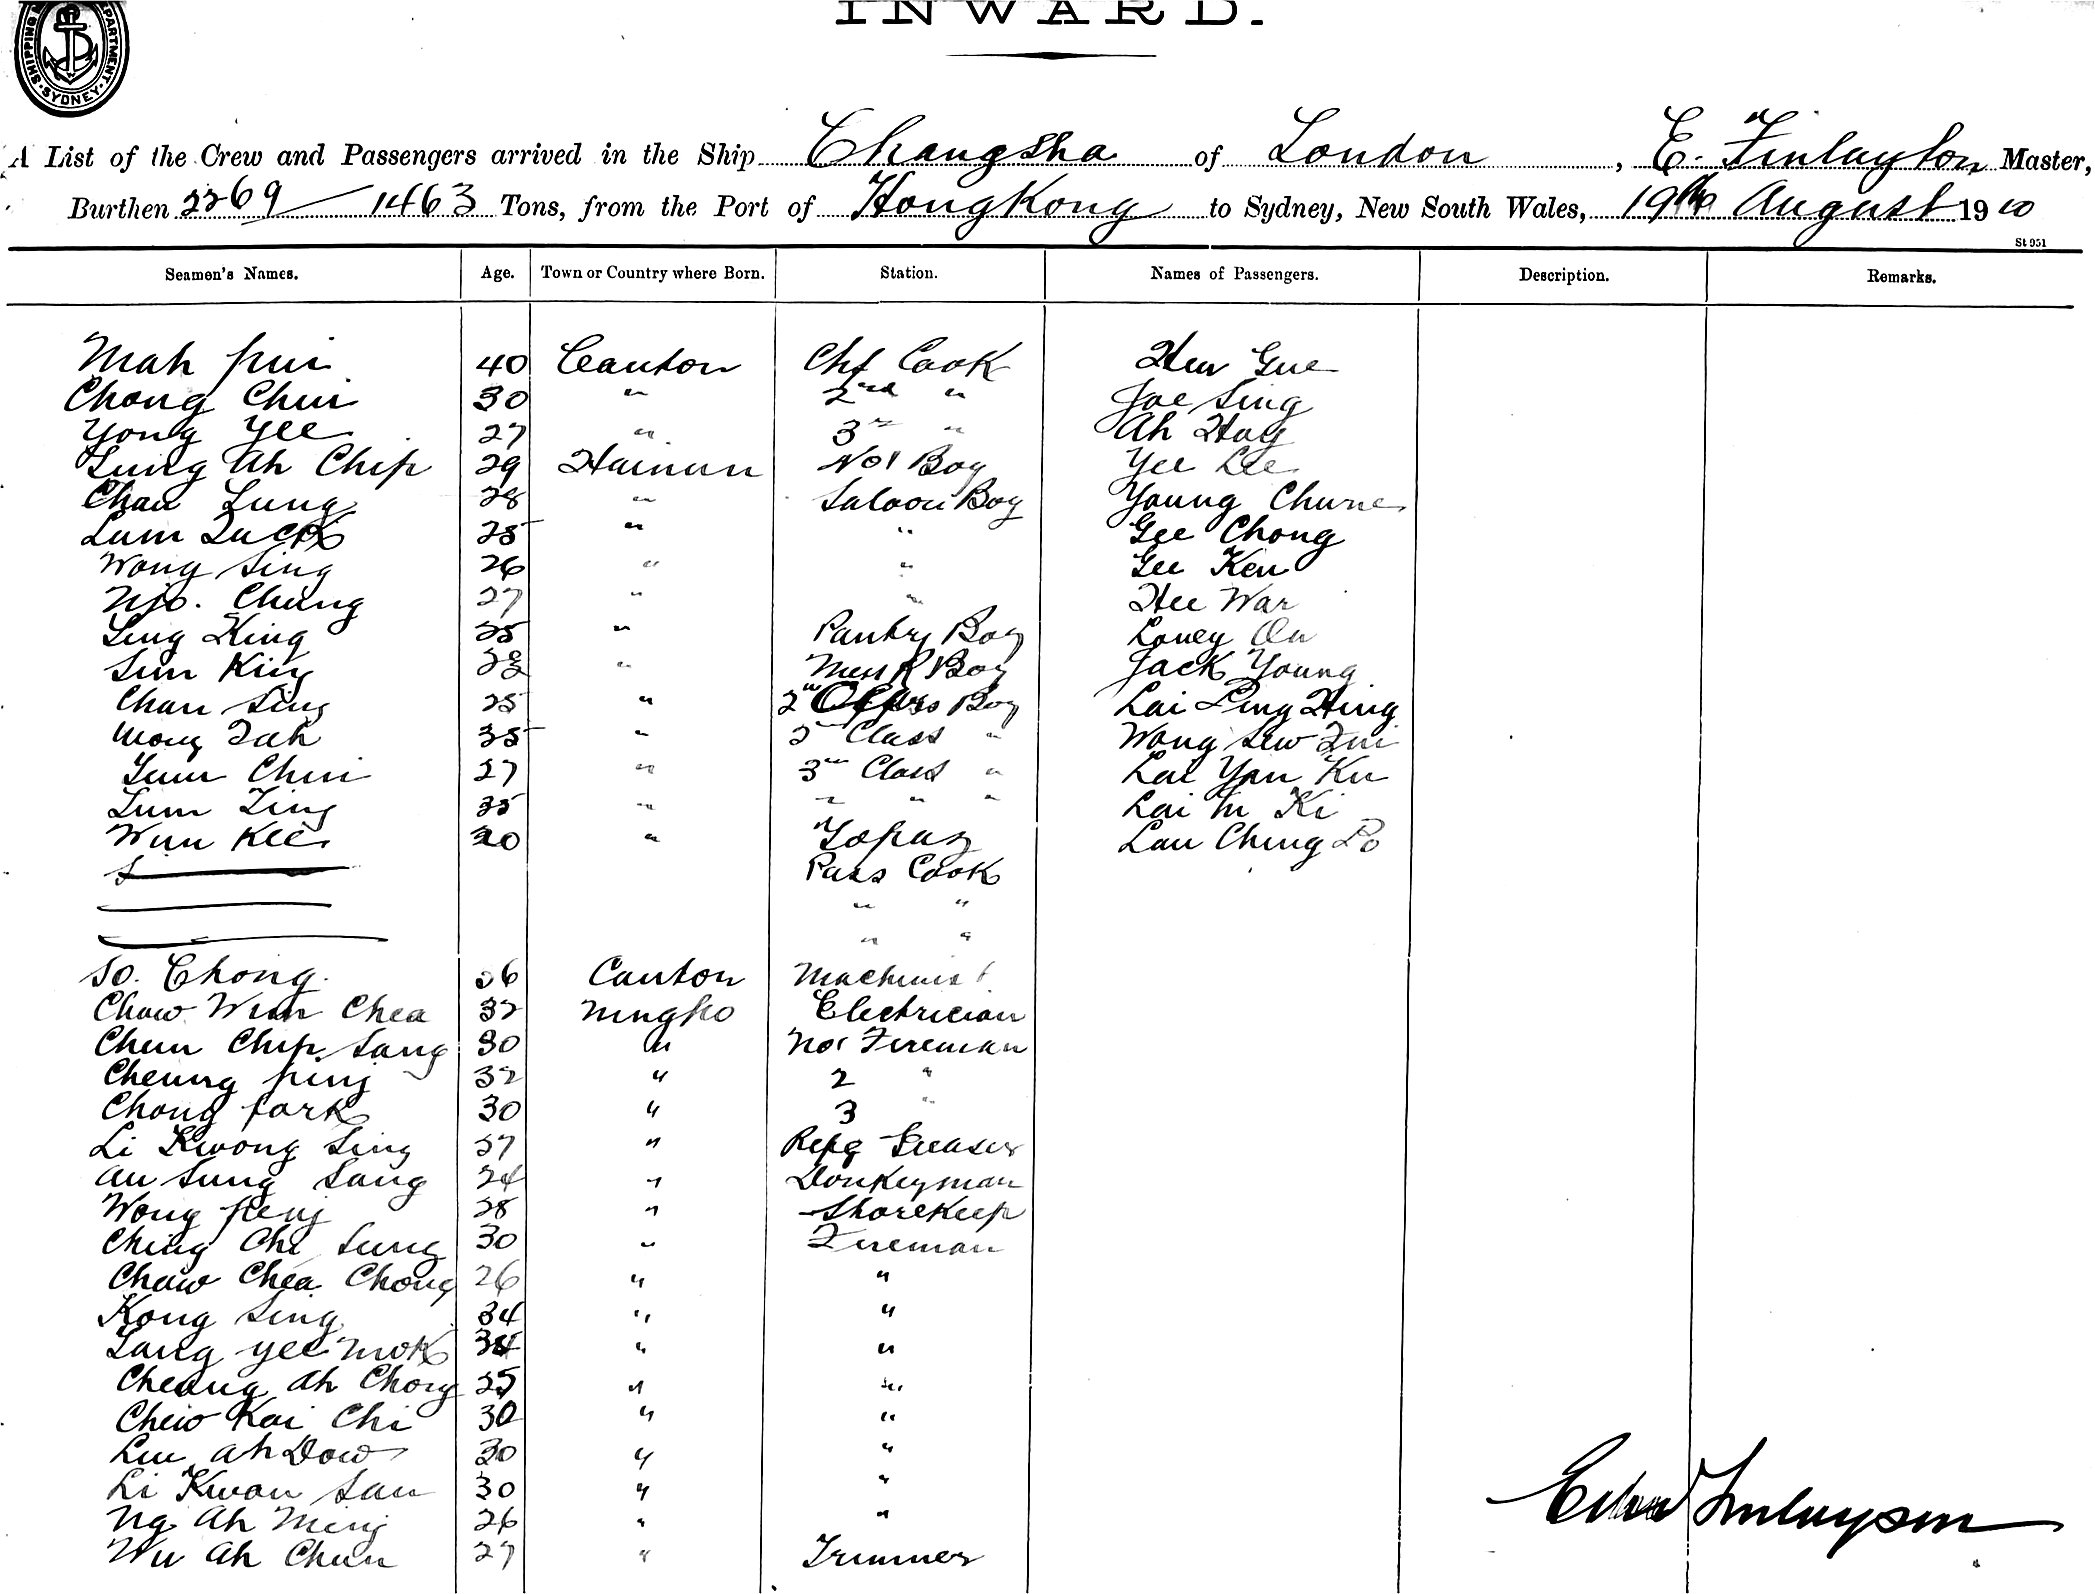 SHIPPING DEPARTMENT SYDNEY
INWARD.
A List of the Crew and Passengers arrived in the Ship Changsha of London, E. Finlayson Master,
Burthen 2269 / 1463 Tons, from the Port of HongKong to Sydney, New South Wales, 19th August 1910
St 951
Seamen's Names. Age. Town or Country where Born. Station. Names of Passengers. Description. Remarks.
Mah pui 40 Canton Chf Cook Hew Gue
Chong Chui 30 " 2nd " Joe Sing
Yong Yee 27 " 3rd " Ah Hoy
Lung Ah Chip 29 Hainan No1 Boy Yee Lee
Chan Lung 28 " Saloon Boy Young Chune
Lum Luck 25 " " Gee Chong
Wong Sing 26 " " Gee Ken
Njo. Chung 27 " " Hee War
Ling King 25 " Pantry Boy Loney On
Sim King 28 " Mess R Boy Jack Young
Chan Sing 25 " 2nd Offrs Boy Lai Ping Hing
Wong Tah 35 " 2nd Class " Wong Sew
Lum Chui 27 " 3rd Class " Lai Yan Ku
Lum Ting 35 " " " " Lai Ki
Wun Kee 30 " Topaz Lau Ching Po
Pass Cook
" "
" "
So. Chong. 36 Canton Machinist
Chow Wun Chea 32 Ningpo Electrician
Chun Chip Sang 30 " No1 Fireman
Cheung ping 32 " 2 "
Chong fark 30 " 3 "
Li Kwong Sing 37 " Refg Greaser
Au Sung Sang 24 " Donkeyman
Wong feng 28 " Storekeep
Ching Chi Sung 30 " Fireman
Chow Chea Chong 26 " "
Kong Sing 34 " "
Sang yee mok 34 " "
Cheong Ah Chong 25 " "
Chew Kai Chi 30 " "
Liu Ah Dow 30 " "
Li Kwan San 30 " "
Ng Ah Ming 26 " "
Wu Ah Chun 27 " Trimmer
Finlayson